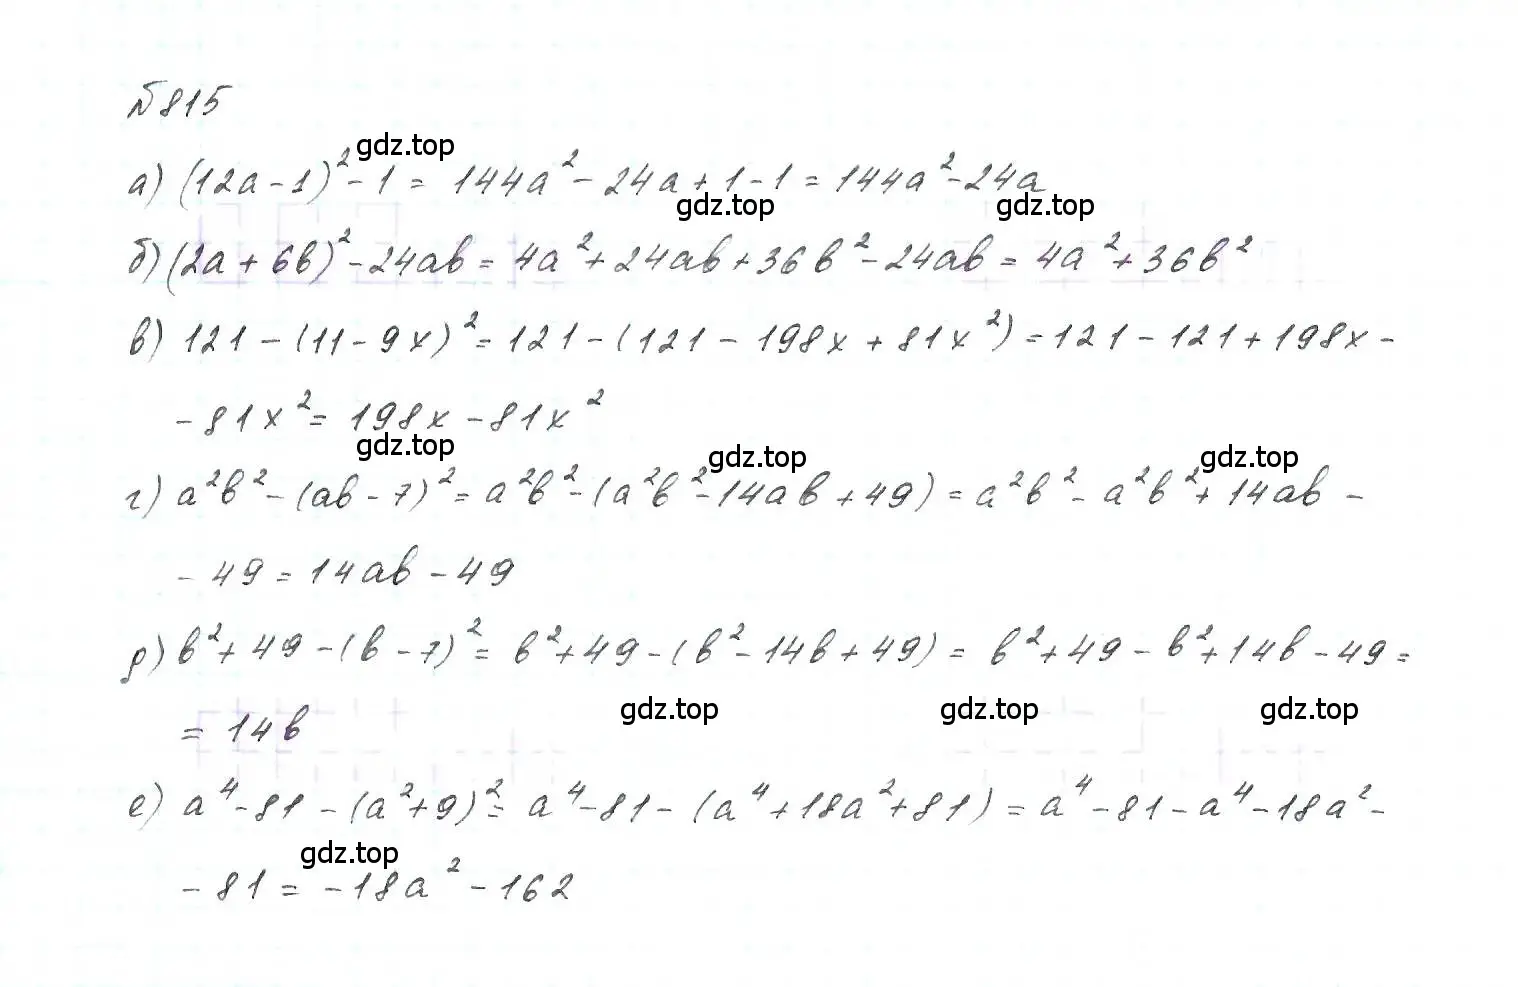 №815
gdz.top
а) (12a-1)²-1 = 144a²-24a+1-1 = 144a²-24a
gdz.top gdz.top
б) (2a+6b)²-24ab = 4a²+24ab+36b²-24ab = 4a²+36b²
в) 121-(11-9x)² = 121-(121-198x+81x²) = 121-121+198x-
-81x² = 198x-81x²
gdz.top gdz.top gdz.top
г) a²b²-(ab-7)² = a²b²-(a²b²-14ab+49) = a²b²-a²b²+14ab-
-49 = 14ab-49
д) b²+49-(b-7)² = b²+49-(b²-14b+49) = b²+49-b²+14b-49 =
gdz.top gdz.top gdz.top
= 14b
е) a⁴-81-(a²+9)² = a⁴-81-(a⁴+18a²+81) = a⁴-81-a⁴-18a²-
gdz.top
-81 = -18a²-162